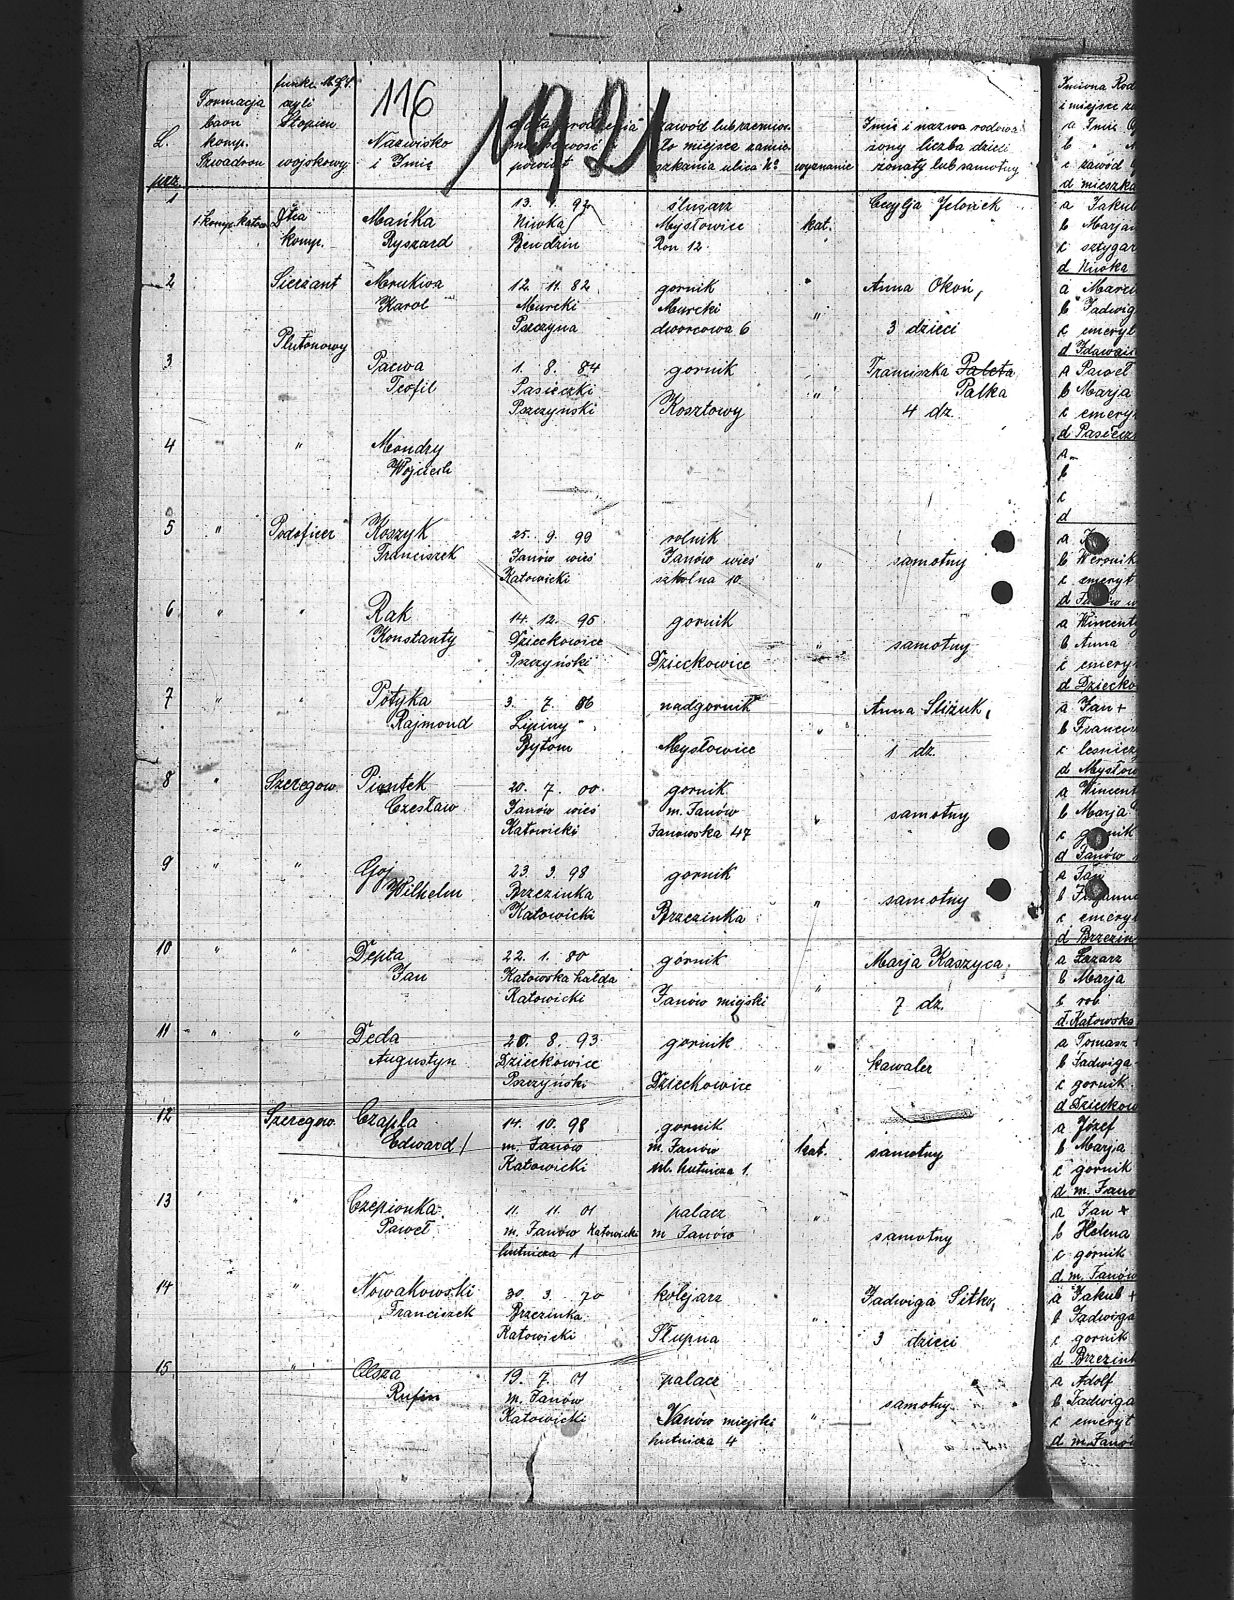 116
1921
L. prz.
Formacja baon komp. Szwadron
funkc. czyli Stopien wojskowy
Nazwisko i Imię
powiat
zawód lub rzemios.
wyznanie
Imię i nazwa rodowa
żony liczba dzieci
żonaty lub samotny
1
1. komp. katow.
komp.
Mańka
Ryszard
Niwka
Bendzin
ślusarz
Mysłowice
Ron 12.
kat.
Cecylja Jelonek
2
Sierżant
Mrukwa
Karol
12. 11. 82
Murcki
Pszczyna
gornik
Murcki
dworcowa 6
"
Anna Okoń,
3 dzieci
3
Plutonowy
Pacwa
Teofil
1. 8. 84
Pasieczki
Pszczyński
gornik
Kosztowy
"
Franciszka Paleta
Palka
4 dz.
4
"
Mondry
Wojciech
5
"
Podoficer
Koszyk
Franciszek
25. 9. 99
Janów wieś
Katowicki
rolnik
Janów wieś
szkolna 10.
"
samotny
6
"
"
Rak
Konstanty
14. 12. 95
Dzieckowice
Pszczyński
gornik
Dzieckowice
"
samotny
7
"
"
Potyka
Rajmond
3. 7. 86
Lipiny
Bytom
nadgornik
Mysłowice
"
Anna Sliżuk,
1 dz.
8
"
Szeregow.
Piontek
Czesław
20. 7. 00.
Janów wieś
Katowicki
gornik
m. Janów
Janowska 47
"
samotny
9
"
"
Goj
Wilhelm
23. 3. 98
Brzezinka
Katowicki
gornik
Brzezinka
"
samotny
10
"
"
Depta
Jan
22. 1. 80
Katowska hałda
Katowicki
górnik
Janów miejski
"
Marja Kaszyca,
7 dz.
11
"
"
Deda
Augustyn
20. 8. 93.
Dzieckowice
Pszczyński
gornik
Dzieckowice
"
kawaler
12
Szeregow.
Czapla
Edward
14. 10. 98
m. Janów
Katowicki
gornik
m. Janów
ul. hutnicza 1.
kat.
samotny
13
"
Czepionka
Paweł
11. 11. 01
m. Janów Katowicki
hutnicza 1
palacz
m Janów
"
samotny
14
"
Nowakowski
Franciszek
30. 3. 70
Brzezinka
Katowicki
kolejarz
Słupna
"
Jadwiga Sitko,
3 dzieci
15
"
Olsza
Rufin
19. 7. 01
m. Janów
Katowicki
palacz
Janów miejski
hutnicza 4
"
samotny
Imiona Rod
i miejsce za
a Imię
b
c zawód
d mieszka
a Jakub
b Marjan
c sztygar
d Niwka
a Marci
b Jadwig
c emeryt
d
a Paweł
b Marja
c emeryt
d Pasiecz
a
b
c
d
a
b Weronik
c emeryt
d
a Wincenty
b Anna
c emeryt
d Dziecko
a Jan +
b Francis
c lesnicz
d Mysłow
a Wincent
b Marja
c gornik
d Janów
a Jan
b Zuzanna
c emeryt
d Brzezin
a Łazarz
b Marja
c rob.
d Katowska
a Tomasz +
b Jadwiga
c gornik
d Dzieckow
a Józef
b Marja
c gornik
d m. Jano
a Jan +
b Helena
c górnik
d m. Janów
a Jakub +
b Jadwiga
c gornik
d Brzezink
a Adolf
b Jadwiga
c emeryt
d m. Janów